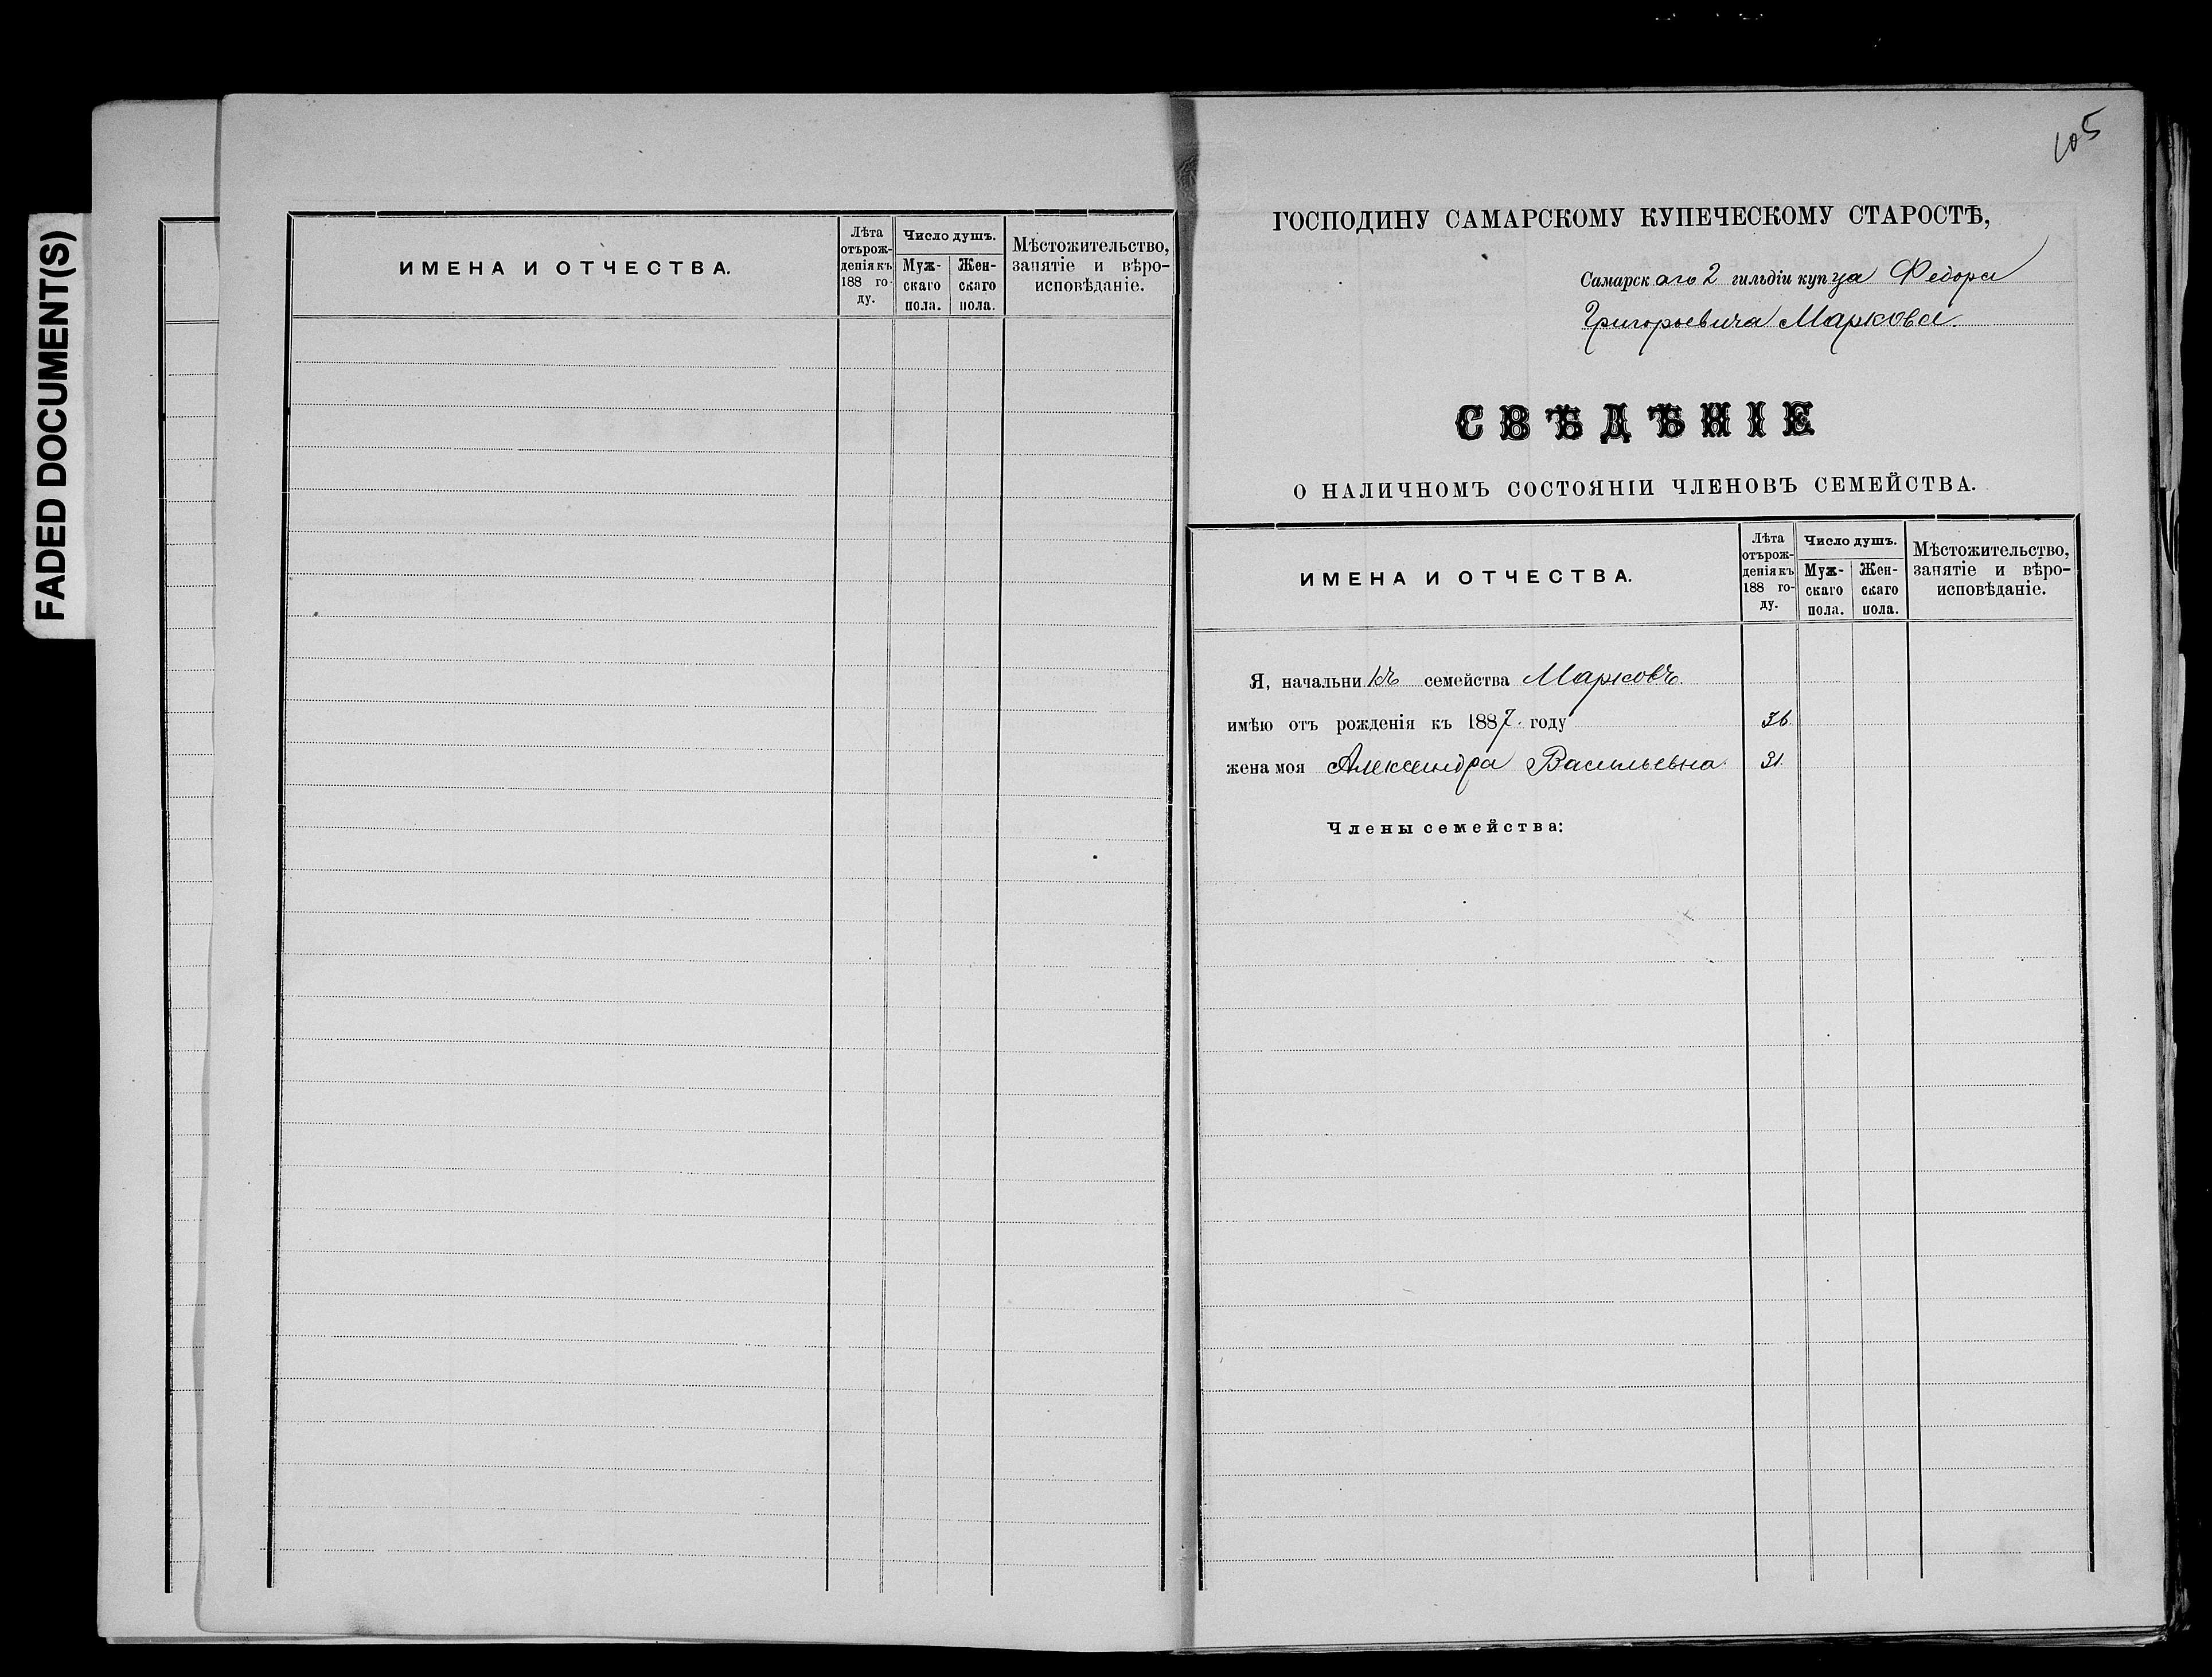 FADED DOCUMENT(S)
ИМЕНА И ОТЧЕСТВА.
Лѣта
отърож-
денія къ
188 го-
ду.
Число душъ.
Муж-
скаго
пола.
Жен-
скаго
пола.
Мѣстожительство,
занятіе и вѣро-
исповѣданіе.
105
ГОСПОДИНУ САМАРСКОМУ КУПЕЧЕСКОМУ СТАРОСТѢ,
Самарскаго 2 гильдіи купца Федора
Григорьевича Маркова.
СВѢДѢНІЕ
О НАЛИЧНОМЪ СОСТОЯНІИ ЧЛЕНОВЪ СЕМЕЙСТВА.
ИМЕНА И ОТЧЕСТВА.
Лѣта
отърож-
денія къ
188 го-
ду.
Число душъ.
Муж-
скаго
пола.
Жен-
скаго
пола.
Мѣстожительство,
занятіе и вѣро-
исповѣданіе.
Я, начальникъ семейства Марковъ.
имѣю отъ рожденія къ 1887. году 36.
жена моя Александра Васильевна 31.
Члены семейства: